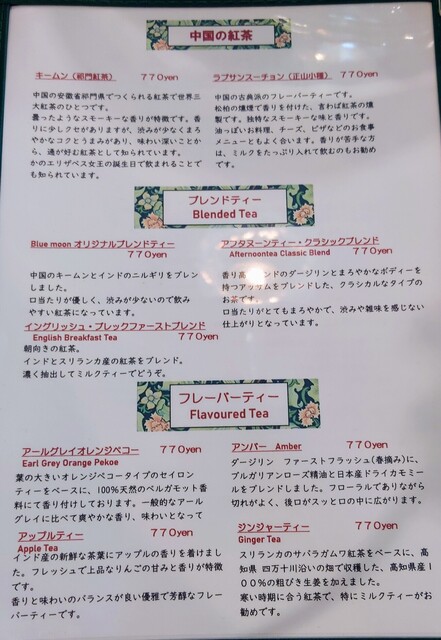 中国の紅茶
キームン（祁門紅茶） 770yen
中国の安徽省祁門県でつくられる紅茶で世界三
大紅茶のひとつです。
曇ったようなスモーキーな香りが特徴です。香
りに少しクセがありますが、渋みが少なくまろ
やかなコクとうまみがあり、味わい深いことか
ら、通が好む紅茶として知られています。
かのエリザベス女王の誕生日で飲まれることで
も知られています。
ラプサンスーチョン（正山小種） 770yen
中国の古典派のフレーバーティーです。
松柏の燻煙で香りを付けた、言わば紅茶の燻
製です。独特なスモーキーな味と香りです。
油っぽいお料理、チーズ、ピザなどのお食事
メニューともよく合います。香りが苦手な方
は、ミルクをたっぷり入れて飲むのもお勧め
です。
ブレンドティー
Blended Tea
Blue moon オリジナルブレンドティー
770yen
中国のキームンとインドのニルギリをブレン
しました。
口当たりが優しく、渋みが少ないので飲み
やすい紅茶になっています。
アフタヌーンティー・クラシックブレンド
Afternoontea Classic Blend 770yen
香り高いインドのダージリンとまろやかなボディーを
持つアッサムをブレンドした、クラシカルなタイプの
お茶です。
口当たりがとてもまろやかで、渋みや雑味を感じない
仕上がりとなっています。
イングリッシュ・ブレックファーストブレンド
English Breakfast Tea 770yen
朝向きの紅茶。
インドとスリランカ産の紅茶をブレンド。
濃く抽出してミルクティーでどうぞ。
フレーバーティー
Flavoured Tea
アールグレイオレンジペコー 770yen
Earl Grey Orange Pekoe
葉の大きいオレンジペコータイプのセイロン
ティーをベースに、100%天然のベルガモット香
料にて香り付けしております。一般的なアール
グレイに比べて爽やかな香り、味わいとなって
アンバー Amber 770yen
ダージリン ファーストフラッシュ(春摘み)に、
ブルガリアンローズ精油と日本産ドライカモミー
ルをブレンドしました。フローラルでありながら
切れがよく、後口がスッと口の中に広がります。
アップルティー 770yen
Apple Tea
インド産の新鮮な茶葉にアップルの香りを着けまし
た。フレッシュで上品なりんごの甘みと香りが特徴
です。
香りと味わいのバランスが良い優雅で芳醇なフレー
バーティーです。
ジンジャーティー 770yen
Ginger Tea
スリランカのサバラガムワ紅茶をベースに、高
知県 四万十川沿いの畑で収穫した、高知県産1
00%の粗びき生姜を加えました。
寒い時期に合う紅茶で、特にミルクティーがお
勧めです。